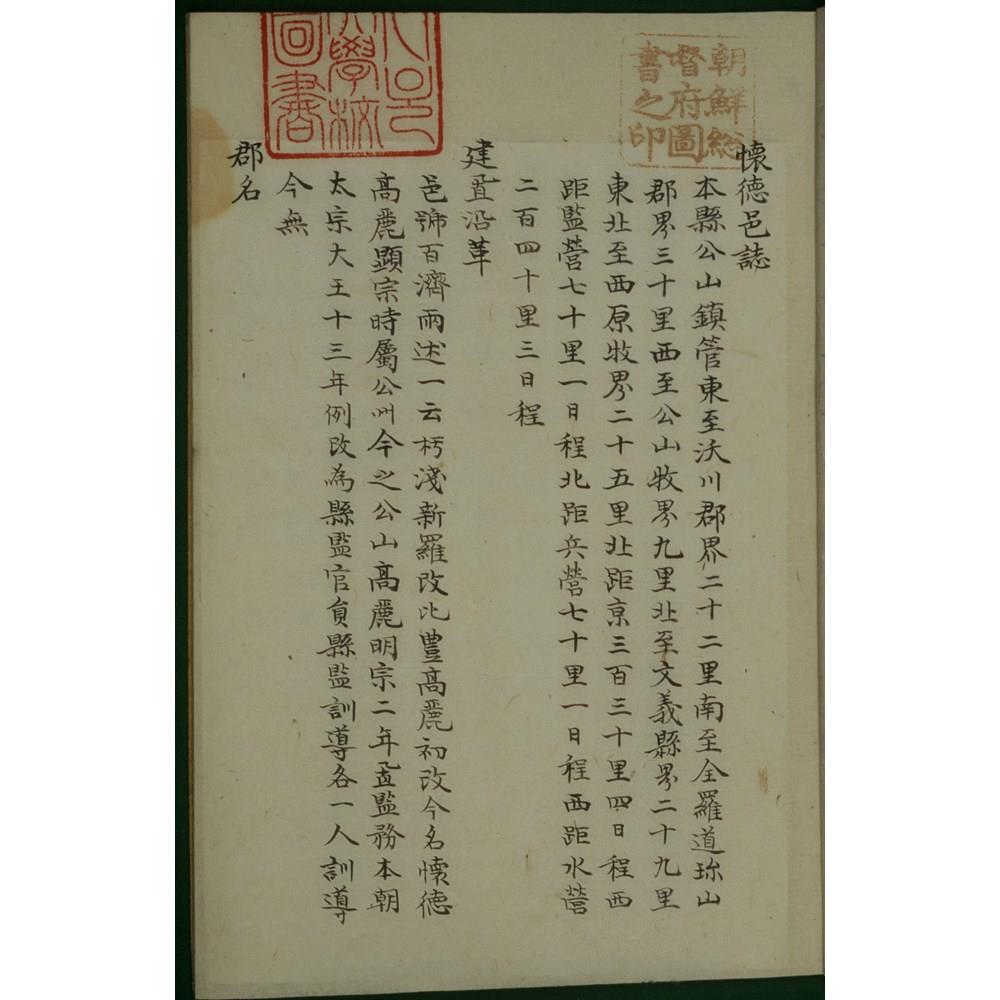 朝鮮総
督府圖
書之印
大學校
圖書
懷德邑誌
本縣公山鎮管東至沃川郡界二十二里南至全羅道珎山
郡界三十里西至公山牧界九里北至文義縣界二十九里
東北至西原牧界二十五里北距京三百三十里四日程西
距監營七十里一日程北距兵營七十里一日程西距水營
二百四十里三日程
建置沿革
邑號百濟雨述一云朽淺新羅改比豊高麗初改今名懷德
高麗顯宗時屬公州今之公山高麗明宗二年置監務本朝
太宗大王十三年例改為縣監官員縣監訓導各一人訓導
今無
郡名